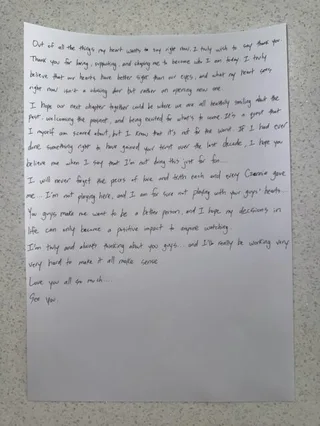 Out of all the things my heart wants to say right now, I truly wish to say thank you.
Thank you for being, supporting, and shaping me to become who I am today. I truly
believe that our hearts have better sight than our eyes, and what my heart sees
right now isn't a closing door but rather an opening new one.
I hope our next chapter together could be where we are all tearfully smiling about the
past, welcoming the present, and being excited for what's to come. It's a point that
I myself am scared about, but I know that it's not for the worst. If I had ever
done something right to have gained your trust over the last decade, I hope you
believe me when I say that I'm not doing this just for fun...
I will never forget the years of love and teeth each and every gave
me... I'm not playing here, and I am for sure not playing with your guys' hearts...
You guys make me want to be a better person, and I hope my decisions in
life can only become a positive impact to anyone watching.
I'm truly and always thinking about you guys... and I'll really be working very
very hard to make it all make sense.
Love you all so much...
See you.